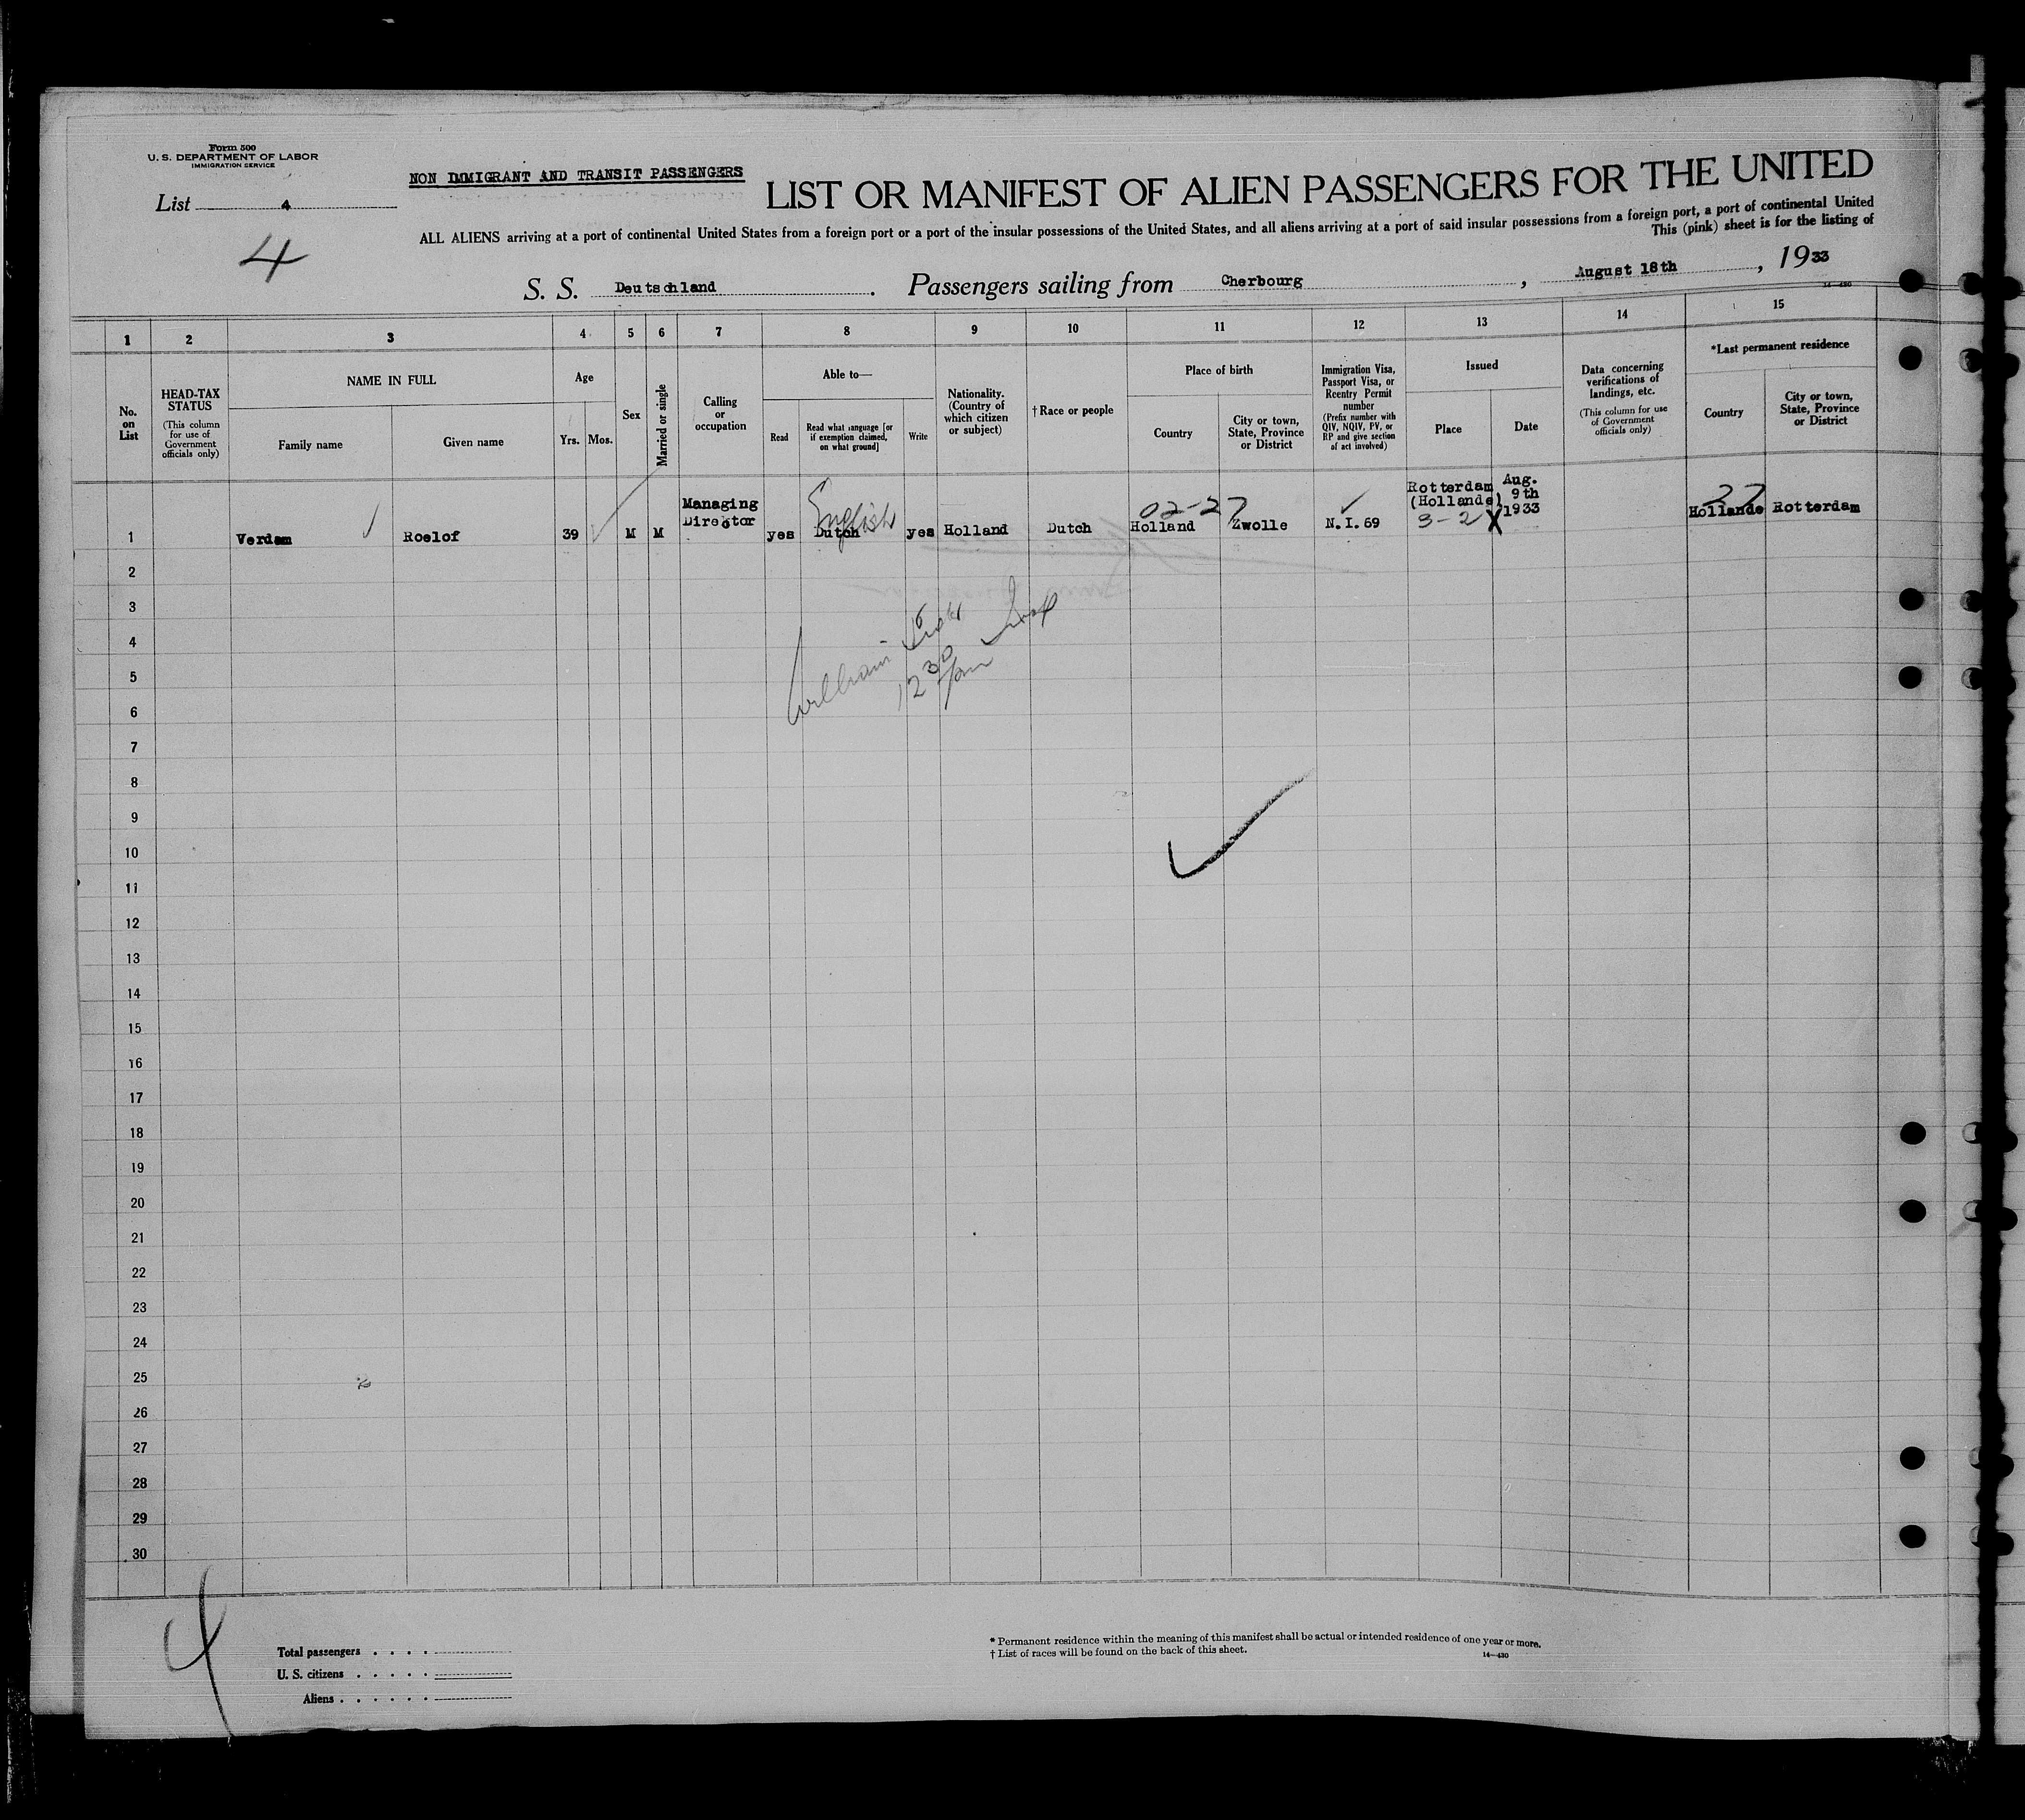 Form 500
U. S. DEPARTMENT OF LABOR
IMMIGRATION SERVICE
NON IMMIGRANT AND TRANSIT PASSENGERS
LIST OR MANIFEST OF ALIEN PASSENGERS FOR THE UNITED
List 4
4
ALL ALIENS arriving at a port of continental United States from a foreign port or a port of the insular possessions of the United States, and all aliens arriving at a port of said insular possessions from a foreign port, a port of continental United
This (pink) sheet is for the listing of
S. S. Deutschland. Passengers sailing from Cherbourg, August 18th, 1933
14-430
1 2 3 4 5 6 7 8 9 10 11 12 13 14 15
No. on List
HEAD-TAX STATUS
(This column for use of Government officials only)
NAME IN FULL
Family name
Given name
Age
Yrs. Mos.
Sex
Married or single
Calling or occupation
Able to—
Read
Read what language [or if exemption claimed, on what ground]
Write
Nationality. (Country of which citizen or subject)
† Race or people
Place of birth
Country
City or town, State, Province or District
Immigration Visa, Passport Visa, or Reentry Permit number
(Prefix number with QIV, NQIV, PV, or RP and give section of act involved)
Issued
Place
Date
Data concerning verifications of landings, etc.
(This column for use of Government officials only)
*Last permanent residence
Country
City or town, State, Province or District
1 Verdam Roelof 39 M M Managing Director yes English Dutch yes Holland Dutch 02-27 Holland Zwolle N.I.69 Rotterdam (Hollande) 3-2 X Aug. 9th 1933 27 Hollande Rotterdam
2
3
William
4
12 30
5
6
7
8
9
10
11
12
13
14
15
16
17
18
19
20
21
22
23
24
25
26
27
28
29
30
4
Total passengers . . . .
U. S. citizens . . . . .
Aliens . . . . . .
* Permanent residence within the meaning of this manifest shall be actual or intended residence of one year or more.
† List of races will be found on the back of this sheet.
14-430